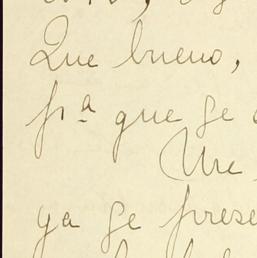 Que bueno,
pª que se
Me
ya se prese